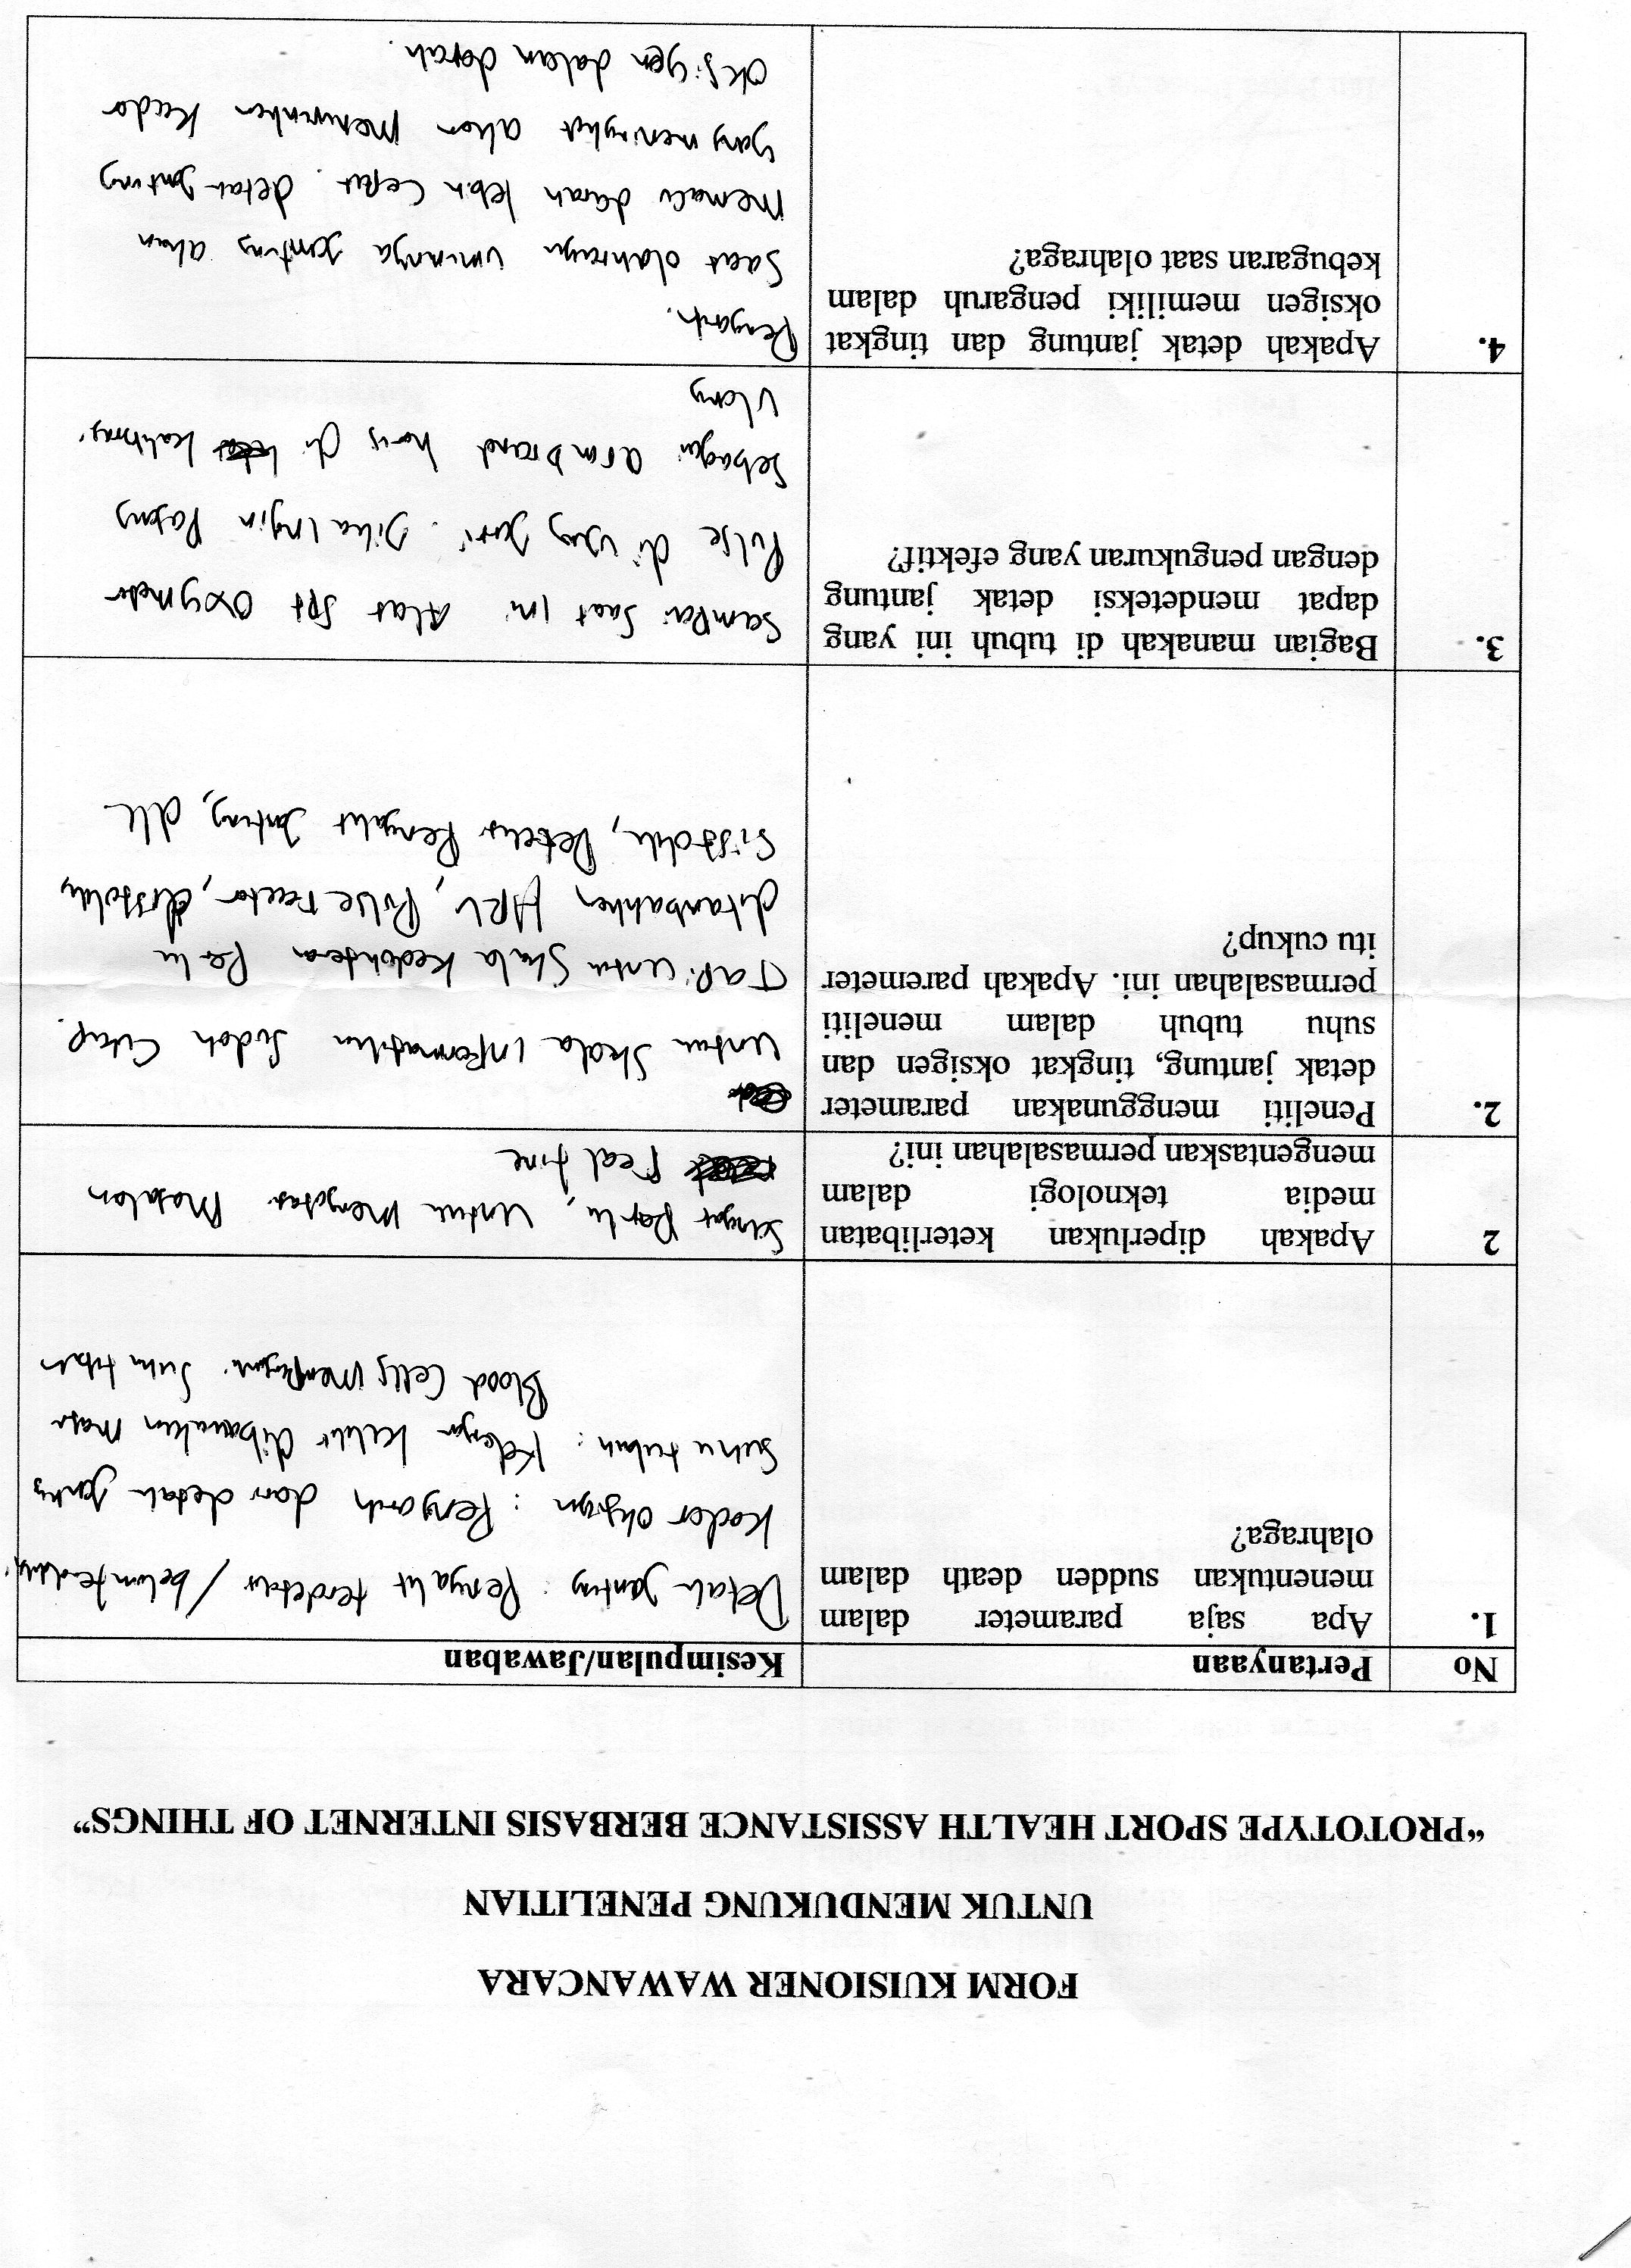 FORM KUISIONER WAWANCARA
UNTUK MENDUKUNG PENELITIAN
“PROTOTYPE SPORT HEALTH ASSISTANCE BERBASIS INTERNET OF THINGS”
No Pertanyaan Kesimpulan/Jawaban
1. Apa saja parameter dalam
menentukan sudden death dalam
olahraga?
Detak Jantung : Penyakit terdeteksi / belum
Kadar Oksigen : Pengaruh dari detak jantung
Suhu tubuh :
Blood Cells Suhu tubuh
2 Apakah diperlukan keterlibatan
media teknologi dalam
mengentaskan permasalahan ini?
Sangat Perlu, Untuk Mengatasi Masalah
real time
2. Peneliti menggunakan parameter
detak jantung, tingkat oksigen dan
suhu tubuh dalam meneliti
permasalahan ini. Apakah paremeter
itu cukup?
Untuk Skala informatika Sudah Cukup.
Tapi untuk Skala Kedokteran Perlu
ditambahkan HRV, Pulse , diastolik,
Sisstolik, Deteksi Penyakit Jantung, dll
3. Bagian manakah di tubuh ini yang
dapat mendeteksi detak jantung
dengan pengukuran yang efektif?
Sampai Saat ini Alat Oxymeter
Pulse di ujung jari. Jika ingin Pasang
Sebagai armband harus di kalibrasi
Ulang
4. Apakah detak jantung dan tingkat
oksigen memiliki pengaruh dalam
kebugaran saat olahraga?
Pengaruh.
Saat olahraga umumnya jantung akan
Memacu darah lebih Cepat. detak jantung
yang meningkat akan Menurunkan Kadar
Oksigen dalam darah.